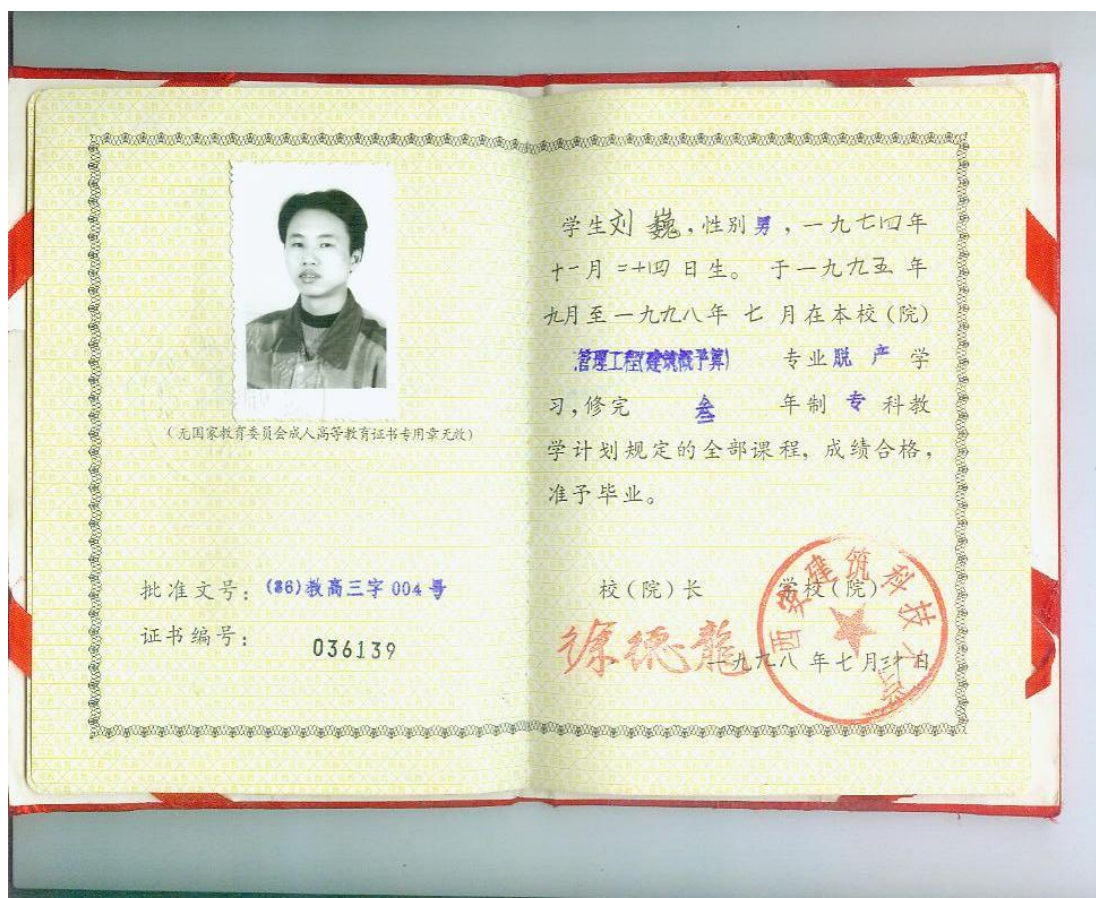 (无国家教育委员会成人高等教育证书专用章无效)
批准文号:(86)教高三字 004 号
证书编号: 036139
学生刘 巍,性别男,一九七四年
十一月二十四日生。于一九九五年
九月至一九九八年 七 月在本校(院)
管理工程(建筑概予算) 专业脱 产 学
习,修完 叁 年制 专 科教
学计划规定的全部课程,成绩合格,
准予毕业。
校(院)长 学校(院)
徐德龍
西安建筑科技大学
一九九八 年七月三十日